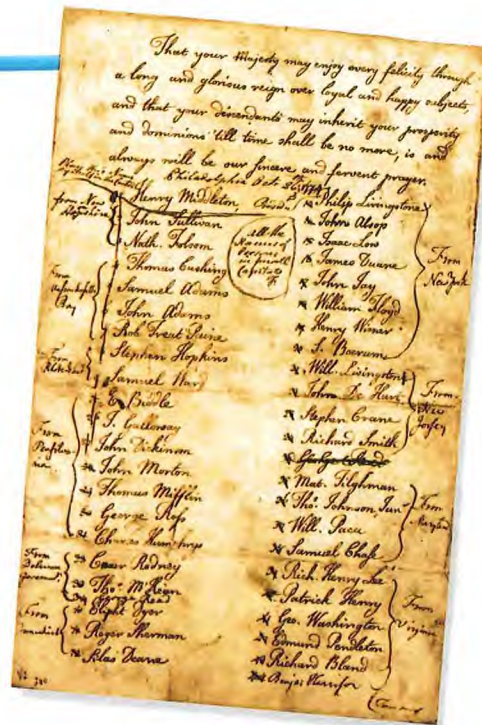 That your Majesty may enjoy every felicity through
a long and glorious reign over loyal and happy subjects,
and that your descendants may inherit your prosperity
and dominions 'till time shall be no more, is and
always will be our sincere and fervent prayer.
Philadelphia Oct. 26th 1774
Henry Middleton,
from New
Hampshire
John Sullivan
Nath. Folsom
all the
Names of
Persons
in small
Capitals
From
Massachusetts
Bay
Thomas Cushing
Samuel Adams
John Adams
Rob Treat Paine
From
Stephen Hopkins
Samuel Ward
From
E. Biddle
J. Galloway
John Dickinson
John Morton
Thomas Mifflin
George Ross
Charles Humphreys
From
Delaware
Caesar Rodney
Tho. McKean
George Read
From
Elipht Dyer
Roger Sherman
Silas Deane
Philip Livingstone
John Alsop
Isaac Low
James Duane
John Jay
William Floyd
Henry Wisner
S. Boerum
From
New York
Will. Livingston
John De Hart
Stephen Crane
Richard Smith
From
New
Jersey
George Read
Mat. Tilghman
Tho. Johnson Junr
Will. Paca
Samuel Chase
From
Maryland
Rich. Henry Lee
Patrick Henry
Geo. Washington
Edmund Pendleton
Richard Bland
Benj. Harrison
From
Virginia